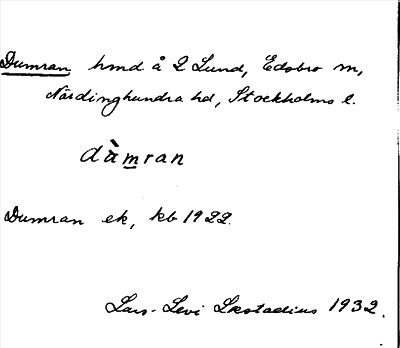 Dumran hmd å 2 Lund, Edsbro sn,
Närdinghundra hd, Stockholms l.
du̇̀m̲ran
Dumran ek, kb 1922.
Lars-Levi Læstadius 1932.